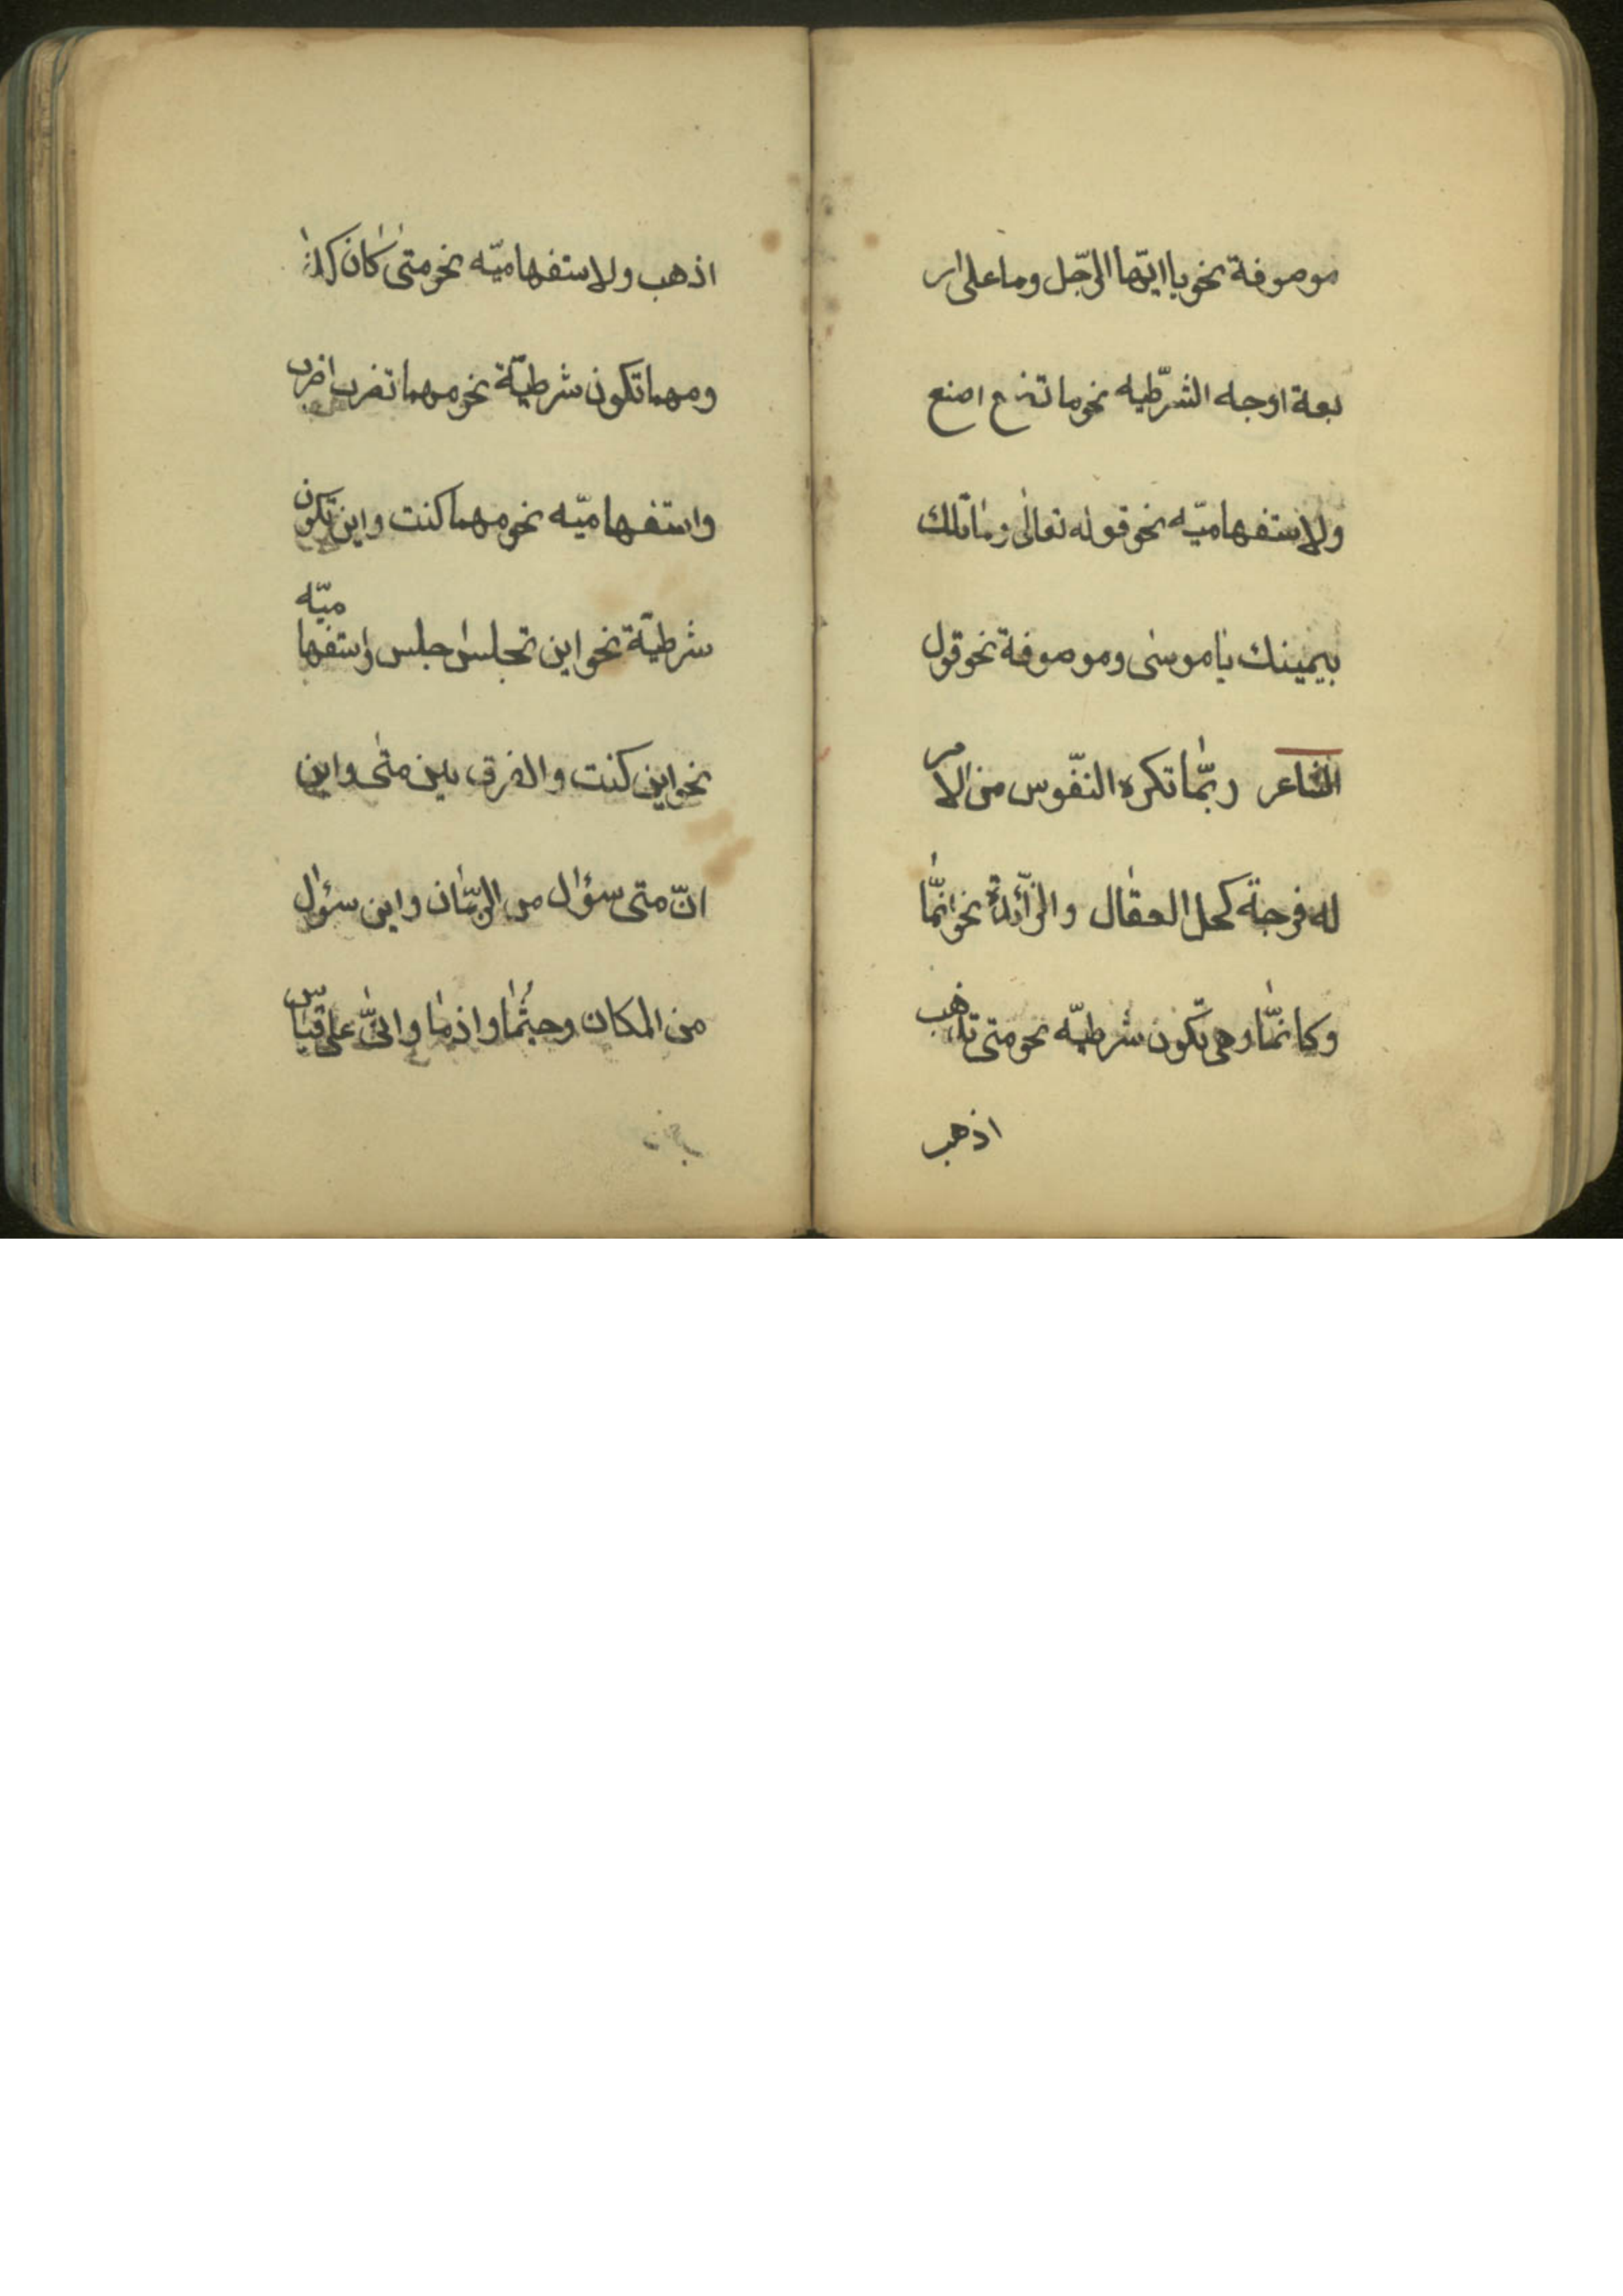 موصوفة نحو يا ايّها الرّجل وما على ار
بعة اوجه الشرّطيه نحو ما تصنع اصنع
ولاستفهاميّه نحو قوله تعالى وما تلك
بيمينك يا موسى وموصوفة نحو قول
الشاعر ربّما تكره النفّوس من الامر
له فرجة كحل العقال والزّآئدة نحو انّما
وكانمّا وهى تكون شرطيّه نحو متى تذهب
اذهب
اذهب ولاستفهاميّه نحو متى كان كذا
ومهما تكون شرطيّة نحو مهما تضرب اضرب
واستفهاميّه نحو مهما كنت واين تكون
شرطيّة نحو اين تجلس اجلس واستفهاميّه
نحو اين كنت والفرق بين متى واين
انّ متى سؤال من الزّمان واين سؤال
من المكان وحيثما واذما وانّى على قياس